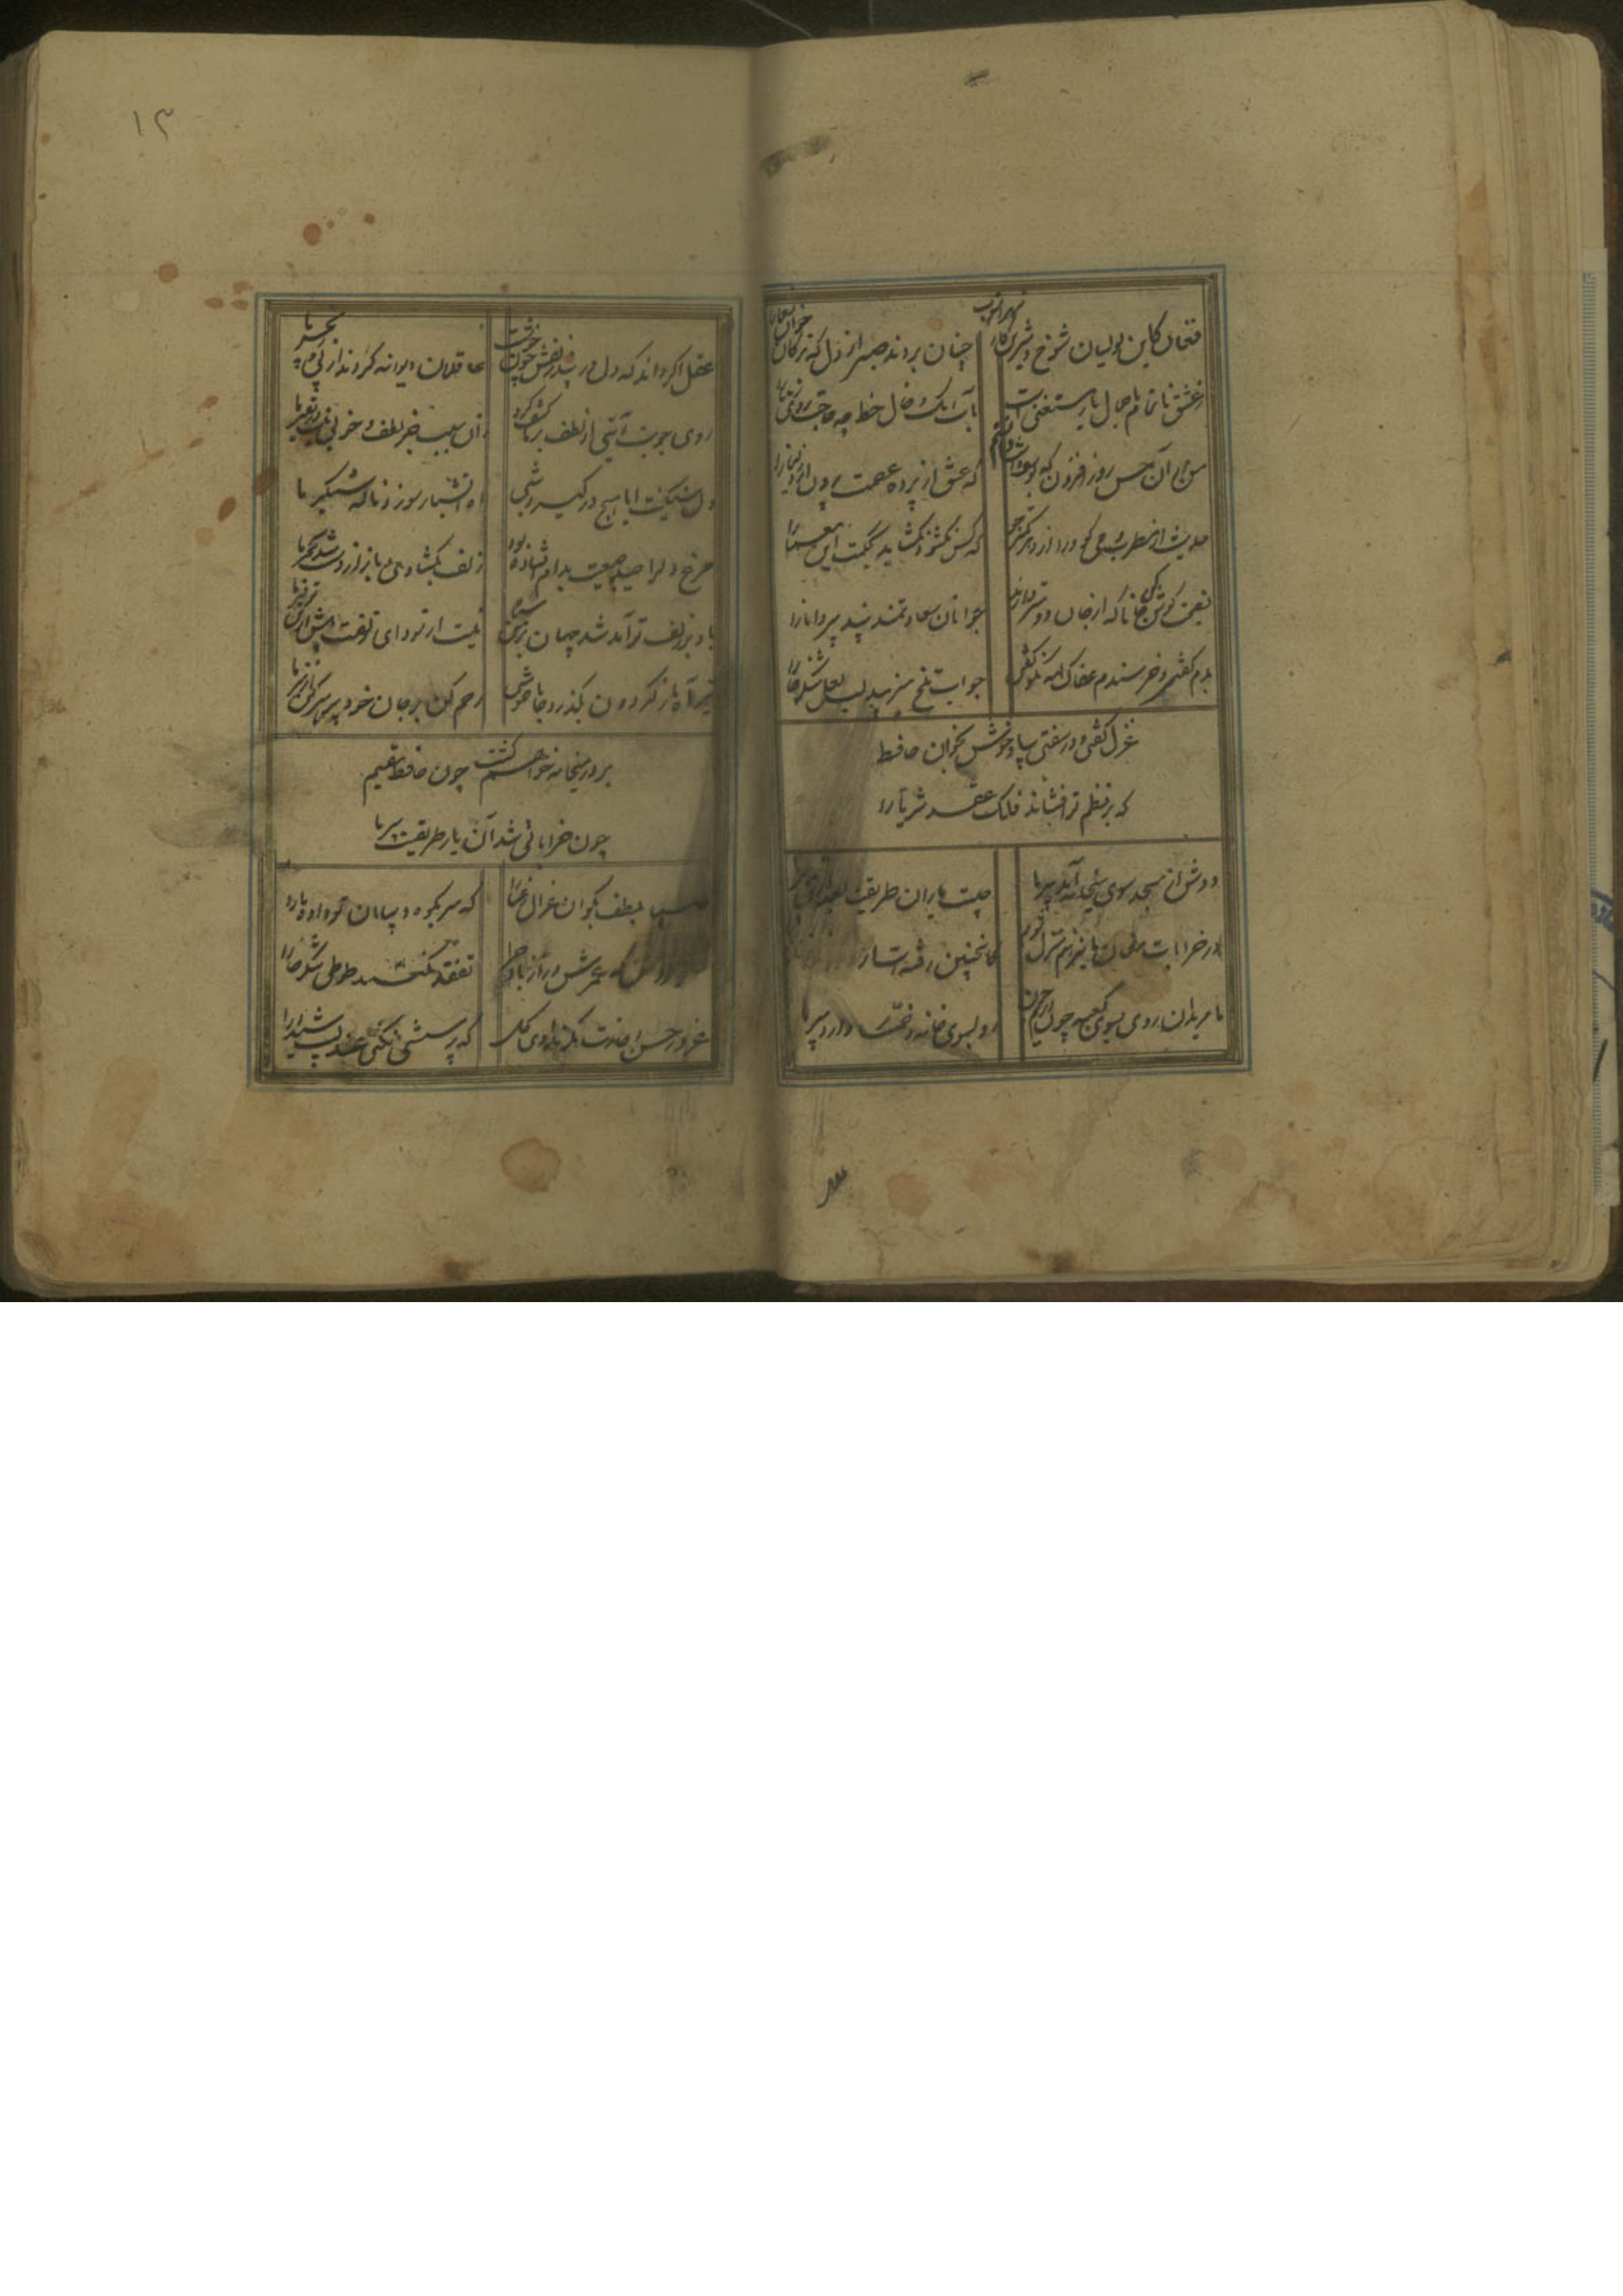 فغان کاین لولیان شوخ و شیرین کار شهرآشوب
چنان بردند صبر از دل که ترکان خوان یغما را
ز عشق ناتمام ما جمال یار مستغنی است
بآب و رنک و خال و خط چه حاجت روی زیبا را
من از آن حسن روز افزون که یوسف داشت دانستم
که عشق از پرده عصمت برون آرد زلیخا را
حدیث از مطرب و می کو و راز دهر کمتر جو
که کس نکشود و نکشاید بحکمت این معما را
نصیحت کوش کن جانا که از جان دوستر دارند
جوانان سعادتمند پند پیر دانا را
بدم کفتی و خرسندم عفاک الله نکو کفتی
جواب تلخ میزیبد لب لعل شکرخا را
غزل کفتی و در سفتی بیا و خوش بخوان حافظ
که بر نظم تو افشاند فلک عقد ثریا را
دوش از مسجد سوی میخانه آمد پیر ما
چیست یاران طریقت بعد ازین تدبیر ما
در خرابات مغان ما نیز هم منزل شویم
کاینچنین رفته است از
ما مریدان روی بسوی کعبه چون آریم چون
رو بسوی خانه خمار دارد پیر ما
۱۳
عقل اکر داند که دل در بند زلفش چون خوشست
عاقلان دیوانه کردند از پی زنجیر ما
روی خوبت آیتی از لطف بر ما کشف کرد
زان سبب جز لطف و خوبی نیست در تفسیر ما
دل سنکینت ایا هیچ درکیرد شبی
اه آتشبار و سوز و ناله شبکیر ما
مرغ دل را صید جمعیت بدام افتاده بود
زلف بکشادی باز از دست شد نخجیر ما
باد بر زلف تو آمد شد جهان بر من سیاه
نیست از سودای زلفت بیش ازین توفیر ما
تیر آه ما ز کردون بکذرد جانا خموش
رحم کن بر جان خود پرهیز کن از تیر ما
بر در میخانه خواهم کشت چون حافظ مقیم
چون خراباتی شد آن یار طریقت پیر ما
صبا بلطف بکو آن غزال رعنا را
که سر بکوه و بیابان تو داده ما را
شکرفروش که عمرش دراز باد چرا
تفقدی نکند طوطی شکرخا را
غرور حسن اجازت مکر نداد ای کل
که پرسشی نکنی عندلیب شیدا را